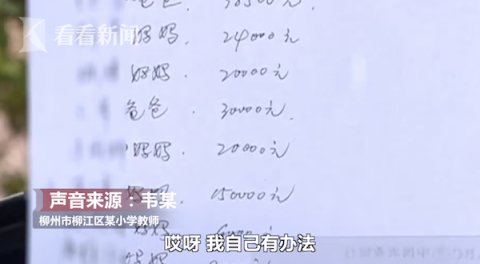 看看新闻
爸爸. 38500元
妈妈. 24000元
妈妈. 20000元
爸爸. 30000元.
妈妈. 20000元
妈妈. 150000元
声音来源：韦某
柳州市柳江区某小学教师
妈妈
哎呀 我自己有办法
妈妈